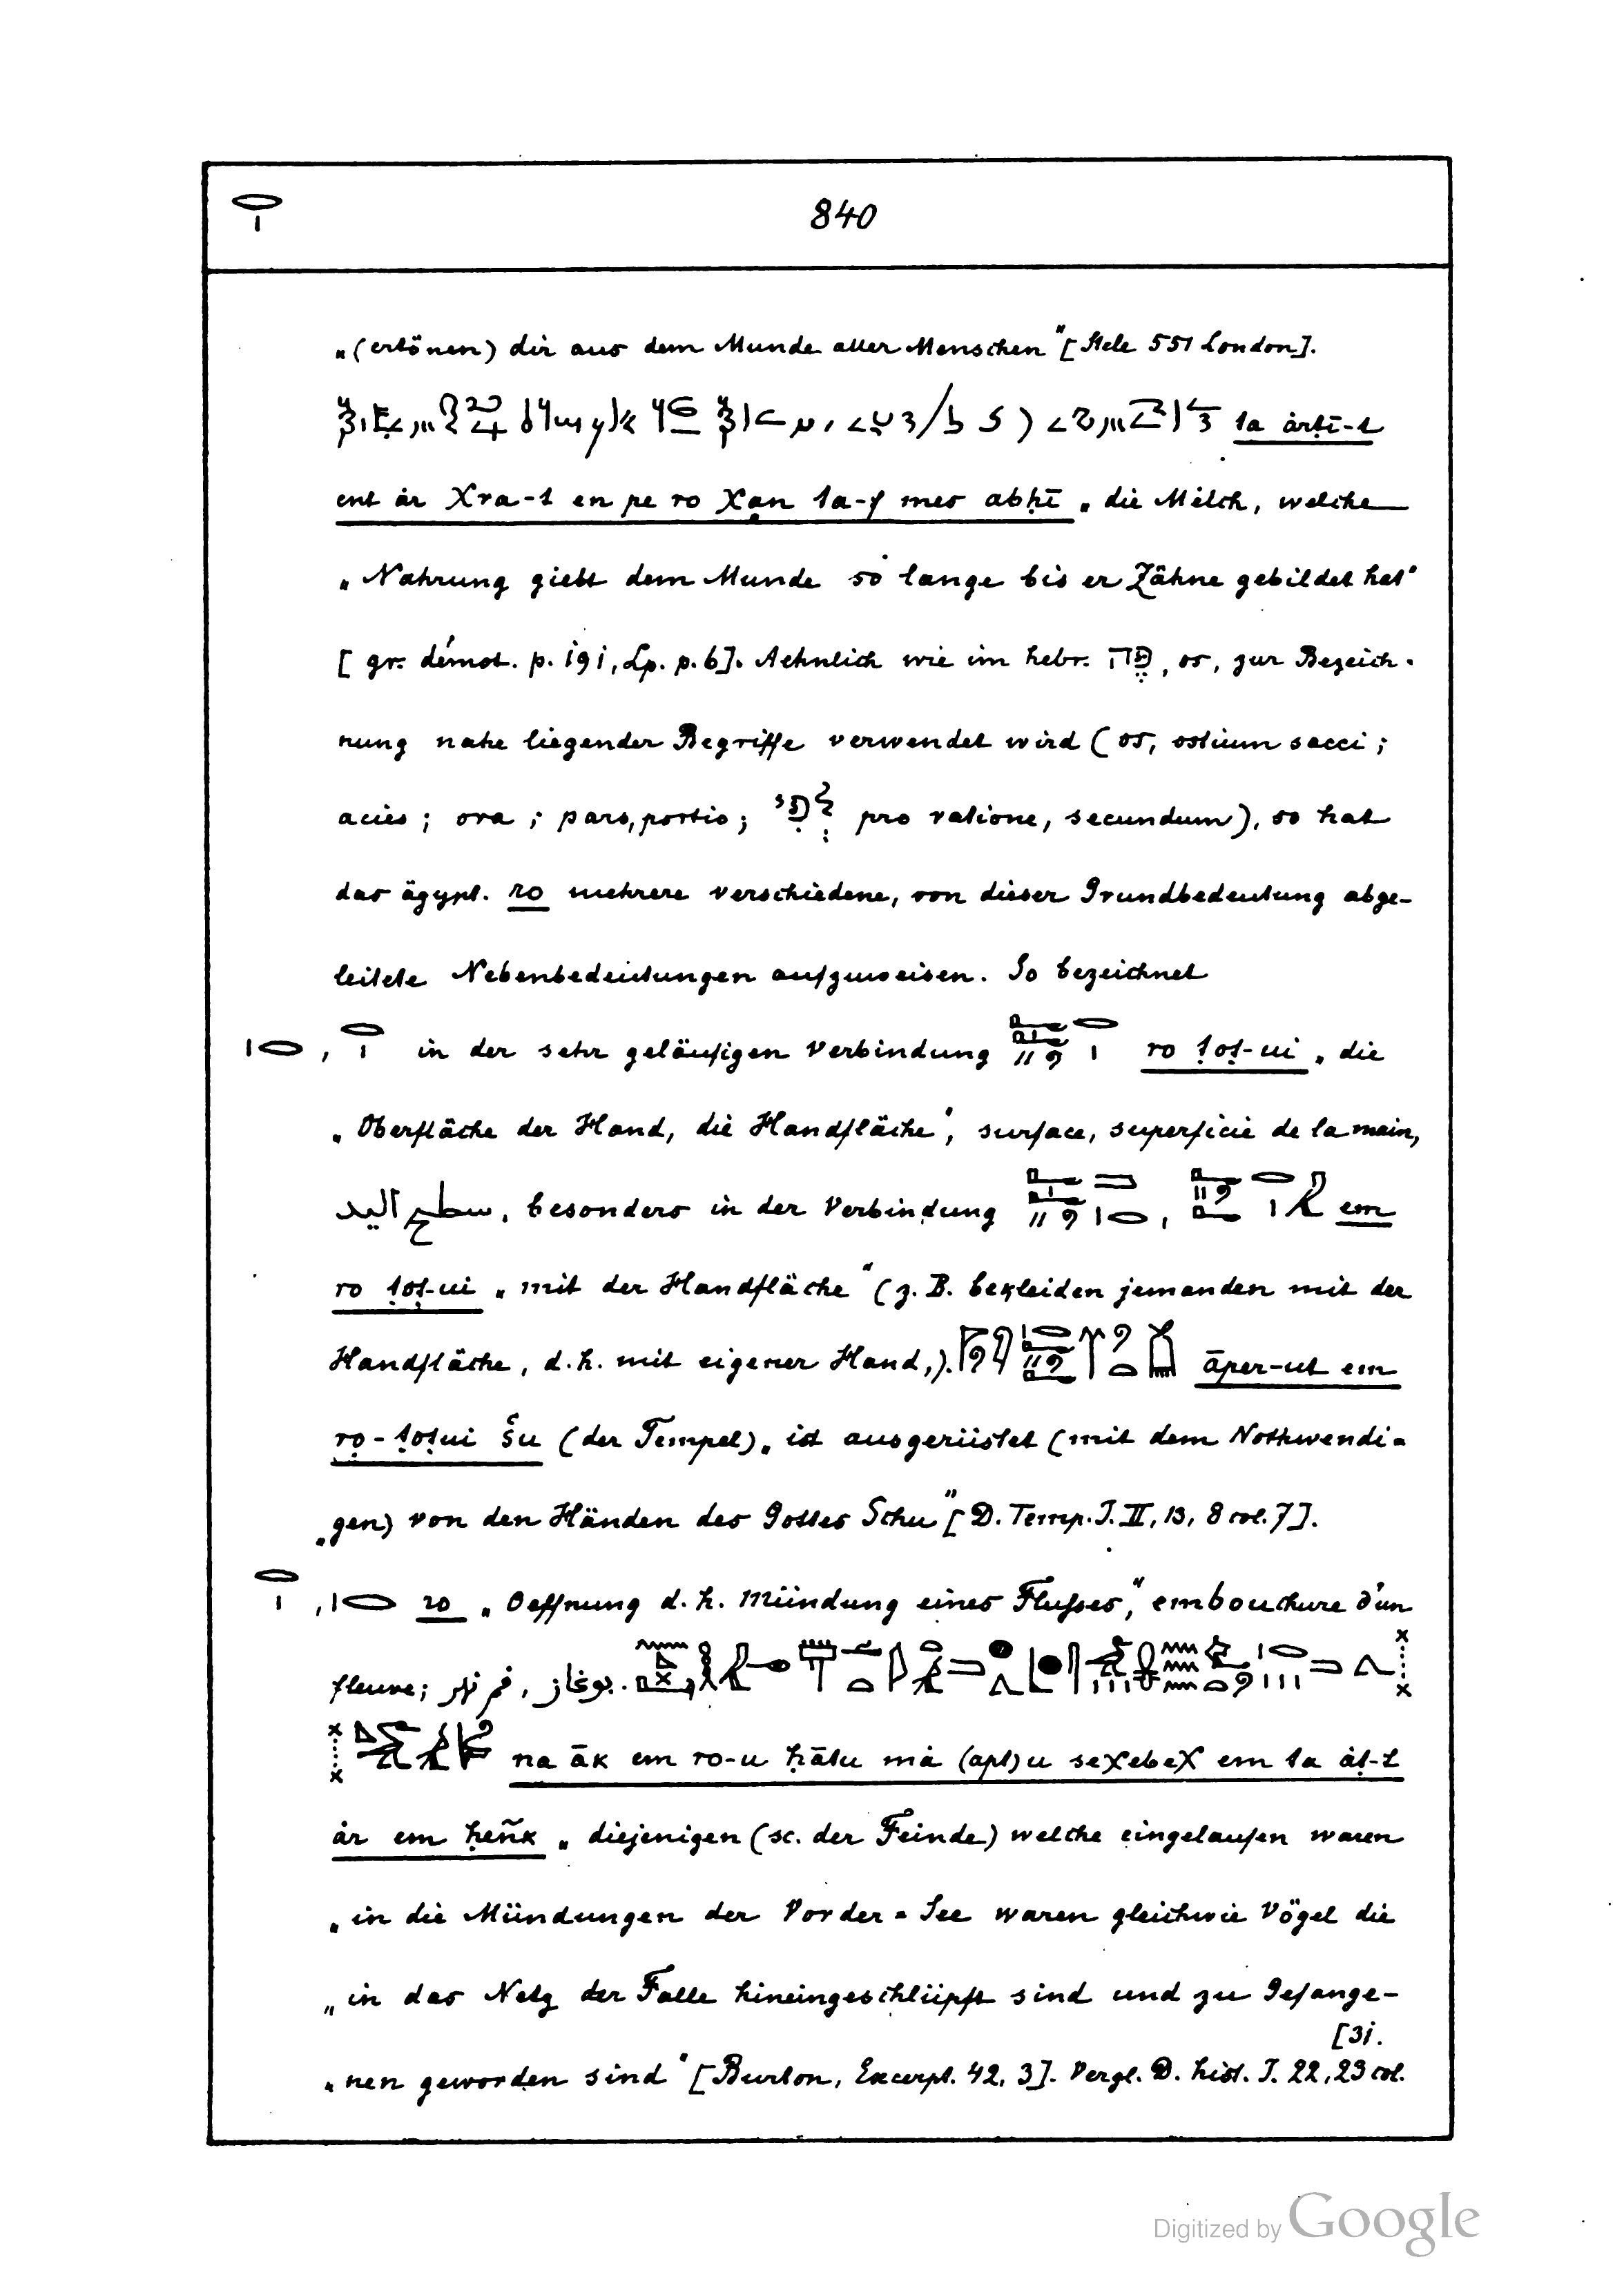 840
„(ertönen) dir aus dem Munde aller Menschen“ [Stele 551 London].
ta ȧrtī-t
ent ȧr Xra-t en pe ro Xan ta-f mes abḥī „die Milch, welche
„Nahrung giebt dem Munde so lange bis er Zähne gebildet hat“
[gr. démot. p. 191, Lp. p. 6]. Aehnlich wie im hebr. פֶּה, os, zur Bezeich-
nung nahe liegender Begriffe verwendet wird (os, ostium sacci;
acies; ora; pars, portio; לְפִי pro ratione, secundum), so hat
das ägypt. ro mehrere verschiedene, von dieser Grundbedeutung abge-
leitete Nebenbedeutungen aufzuweisen. So bezeichnet
𓂋𓏤, 𓂋𓏤 in der sehr geläufigen Verbindung ro ṭoṭ-ui „die
„Oberfläche der Hand, die Handfläche“, surface, superficie de la main,
سطح اليد, besonders in der Verbindung em
ro ṭoṭ-ui „mit der Handfläche“ (z. B. bekleiden jemanden mit der
Handfläche, d. h. mit eigener Hand,). āper-ut em
ro-ṭoṭui šu (der Tempel) „ist ausgerüstet (mit dem Nothwendi-
„gen) von den Händen des Gottes Schu“ [D. Temp. I. II, 13, 8 col. 7].
𓂋𓏤, 𓂋𓏤 ro „Oeffnung d. h. Mündung eines Flusses“, embouchure d'un
fleuve; فم نهر, بوغاز.
na āk em ro-u ḥātu mȧ (apt)u seXebeX em ta ȧṭ-t
ȧr em ḥeñk „diejenigen (sc. der Feinde) welche eingelaufen waren
„in die Mündungen der Vorder-See waren gleichwie Vögel die
„in das Netz der Falle hineingeschlüpft sind und zu Gefange-
„nen geworden sind“ [Burton, Excerpt. 42, 3]. Vergl. D. hist. I. 22, 23 col.
[31.
Digitized by Google